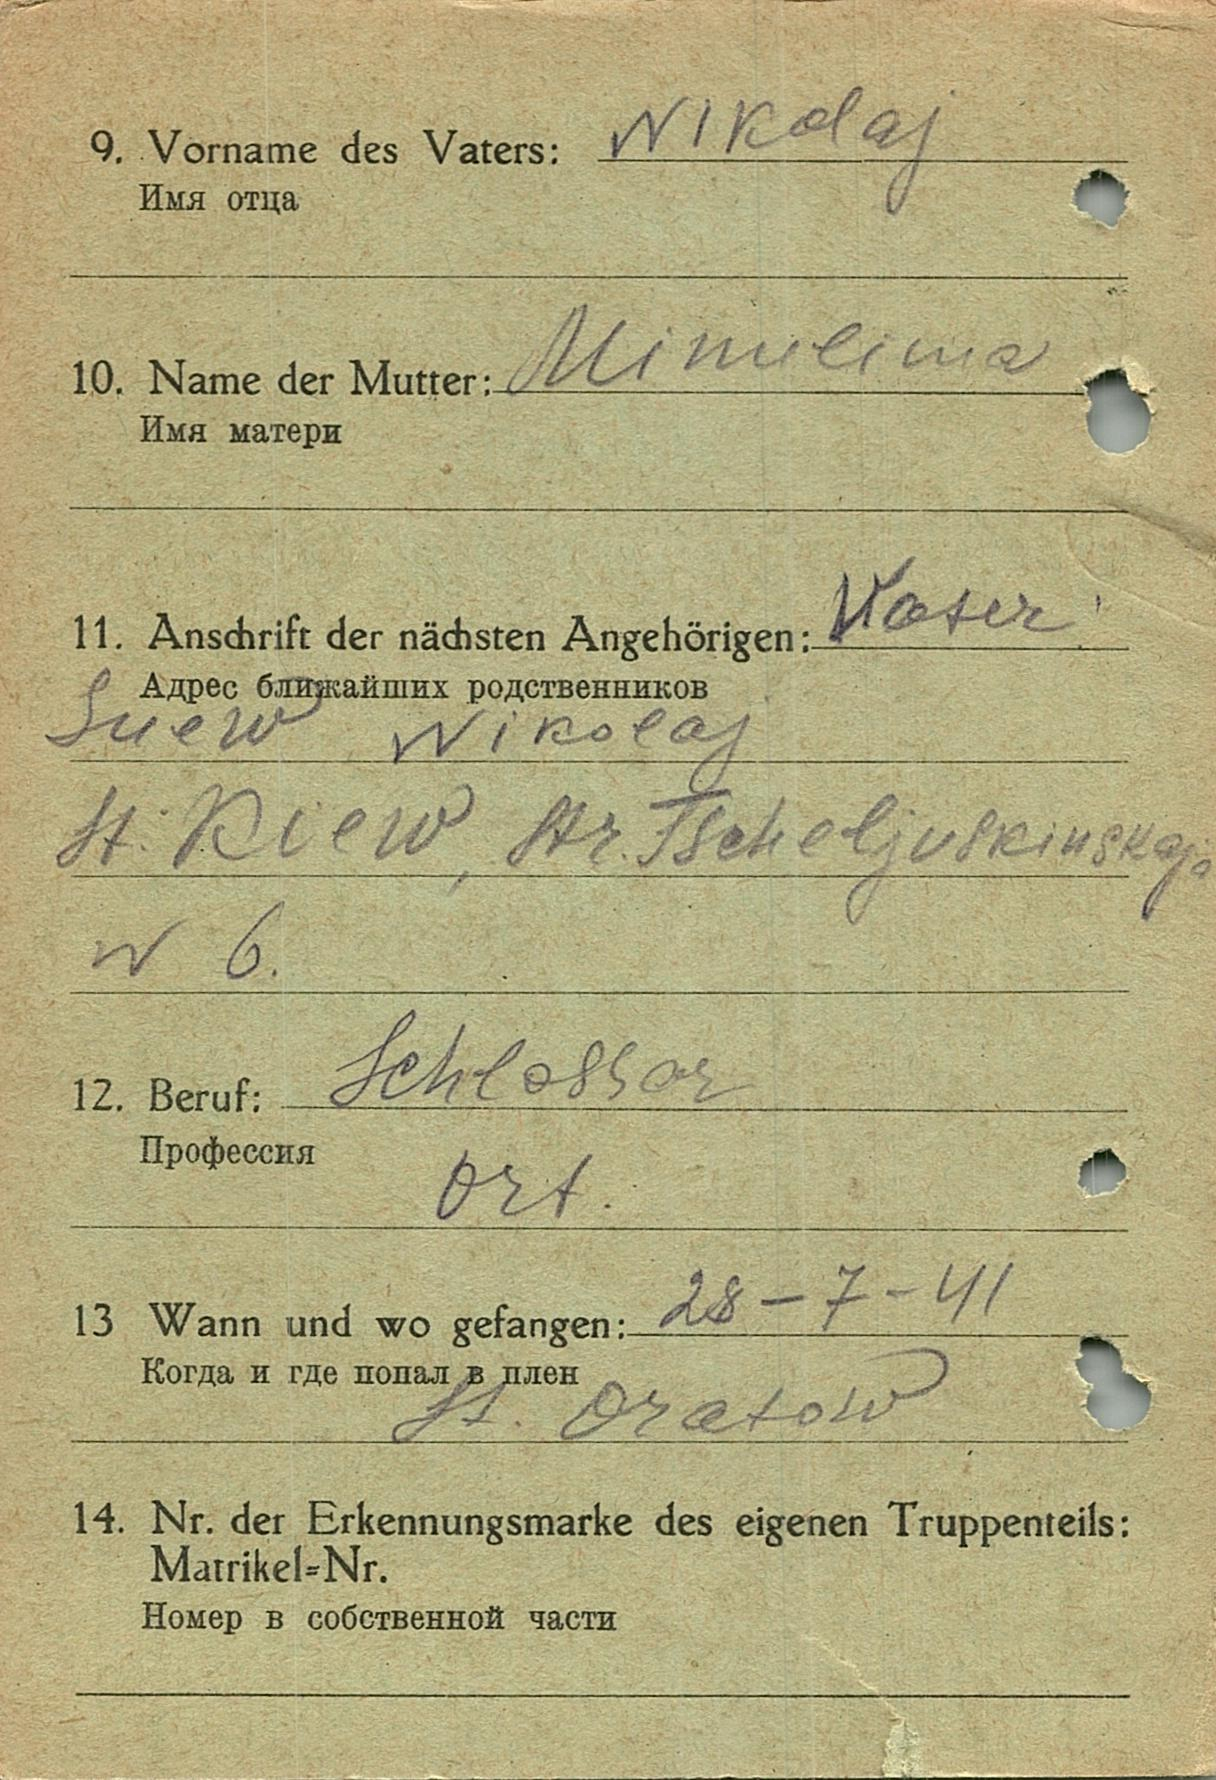 9. Vorname des Vaters: Nikolaj
Имя отца
10. Name der Mutter:
Имя матери
11. Anschrift der nächsten Angehörigen: Vater
Адрес ближайших родственников
Nikolaj
St. Kiew, Str. Tscheljuskinskaja
N 6.
12. Beruf: Schlossar
Профессия
Ort.
13 Wann und wo gefangen: 28-7-41
Когда и где попал в плен
St. Oratow
14. Nr. der Erkennungsmarke des eigenen Truppenteils:
Matrikel=Nr.
Номер в собственной части